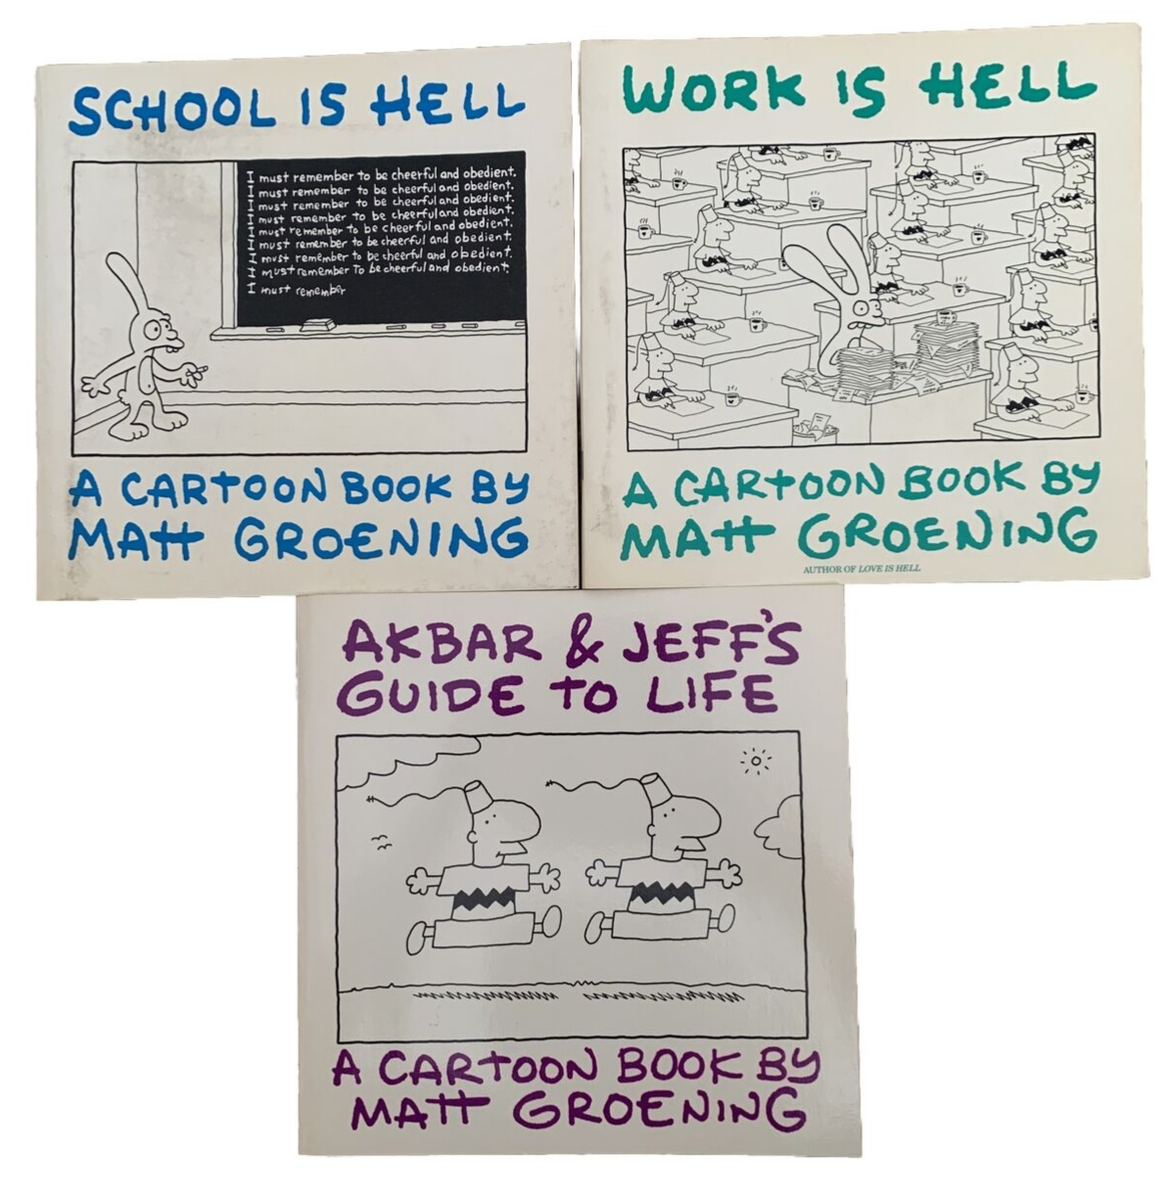 SCHOOL IS HELL
I must remember to be cheerful and obedient.
I must remember to be cheerful and obedient.
I must remember to be cheerful and obedient.
I must remember to be cheerful and obedient.
I must remember to be cheerful and obedient.
I must remember to be cheerful and obedient.
I must remember to be cheerful and obedient.
I must remember To be cheerful and obedient.
I must remembir
A CARTOON BOOK BY
MATT GROENING
WORK IS HELL
A CARTOON BOOK BY
MATT GROENING
AUTHOR OF LOVE IS HELL
AKBAR & JEFF'S
GUIDE TO LIFE
A CARTOON BOOK BY
MATT GROENING